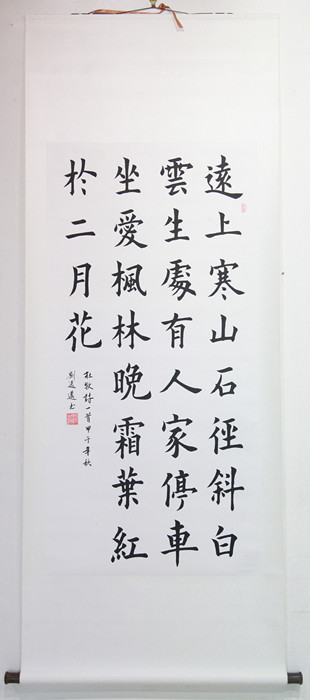 遠上寒山石徑斜白
雲生處有人家停車
坐愛楓林晚霜葉紅
於二月花
杜牧詩一首甲午年秋